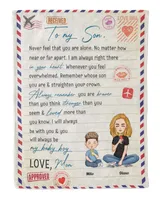 RECEIVED
To my Son,
Never feel that you are alone. No matter how
near or far apart. I am always right there
in your heart. Whenever you feel
overwhelmed. Remember whose son
you are & straighten your crown.
Always remember you are braver
than you think, stronger
than you seem & loved more than
you know. I will always
be with you & you will
always be
my baby boy.
LOVE, Mom
Mike
APPROVED